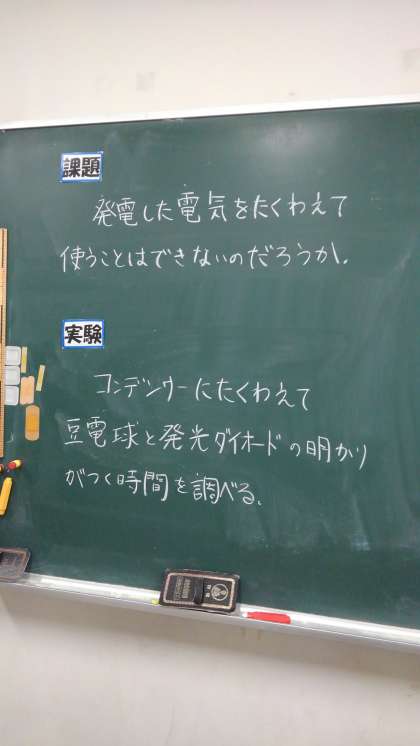 課題
発電した電気をたくわえて
使うことはできないのだろうか。
実験
コンデンサーにたくわえて
豆電球と発光ダイオードの明かり
がつく時間を調べる。